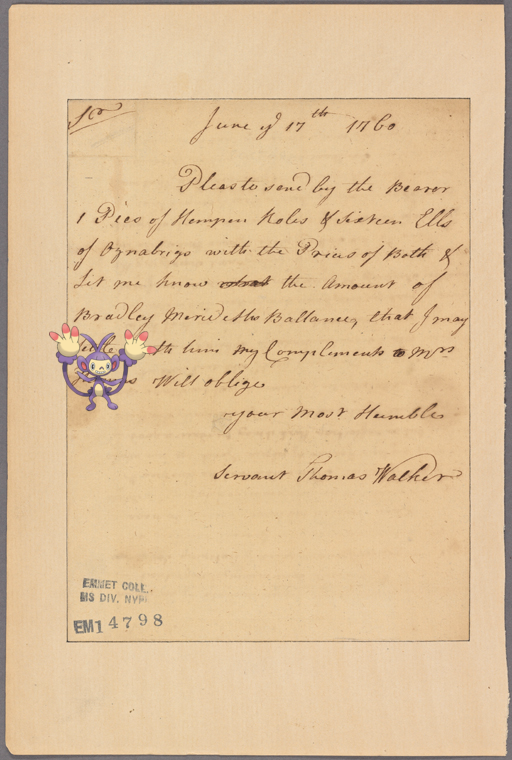 Sir
June ye 17th 1760
Pleas to send by the Bearor
1 Pies of Hempen Roles & sixteen Ells
of Oznabrigs with the Prices of Both &
Let me know the Amount of
Bradley Meredeths Ballance, that I may
him my Complements to Mrs
Will oblige
your Most Humble
Servant Thomas Walker
EMMET COLL.
MS DIV. NYPL
EM14798